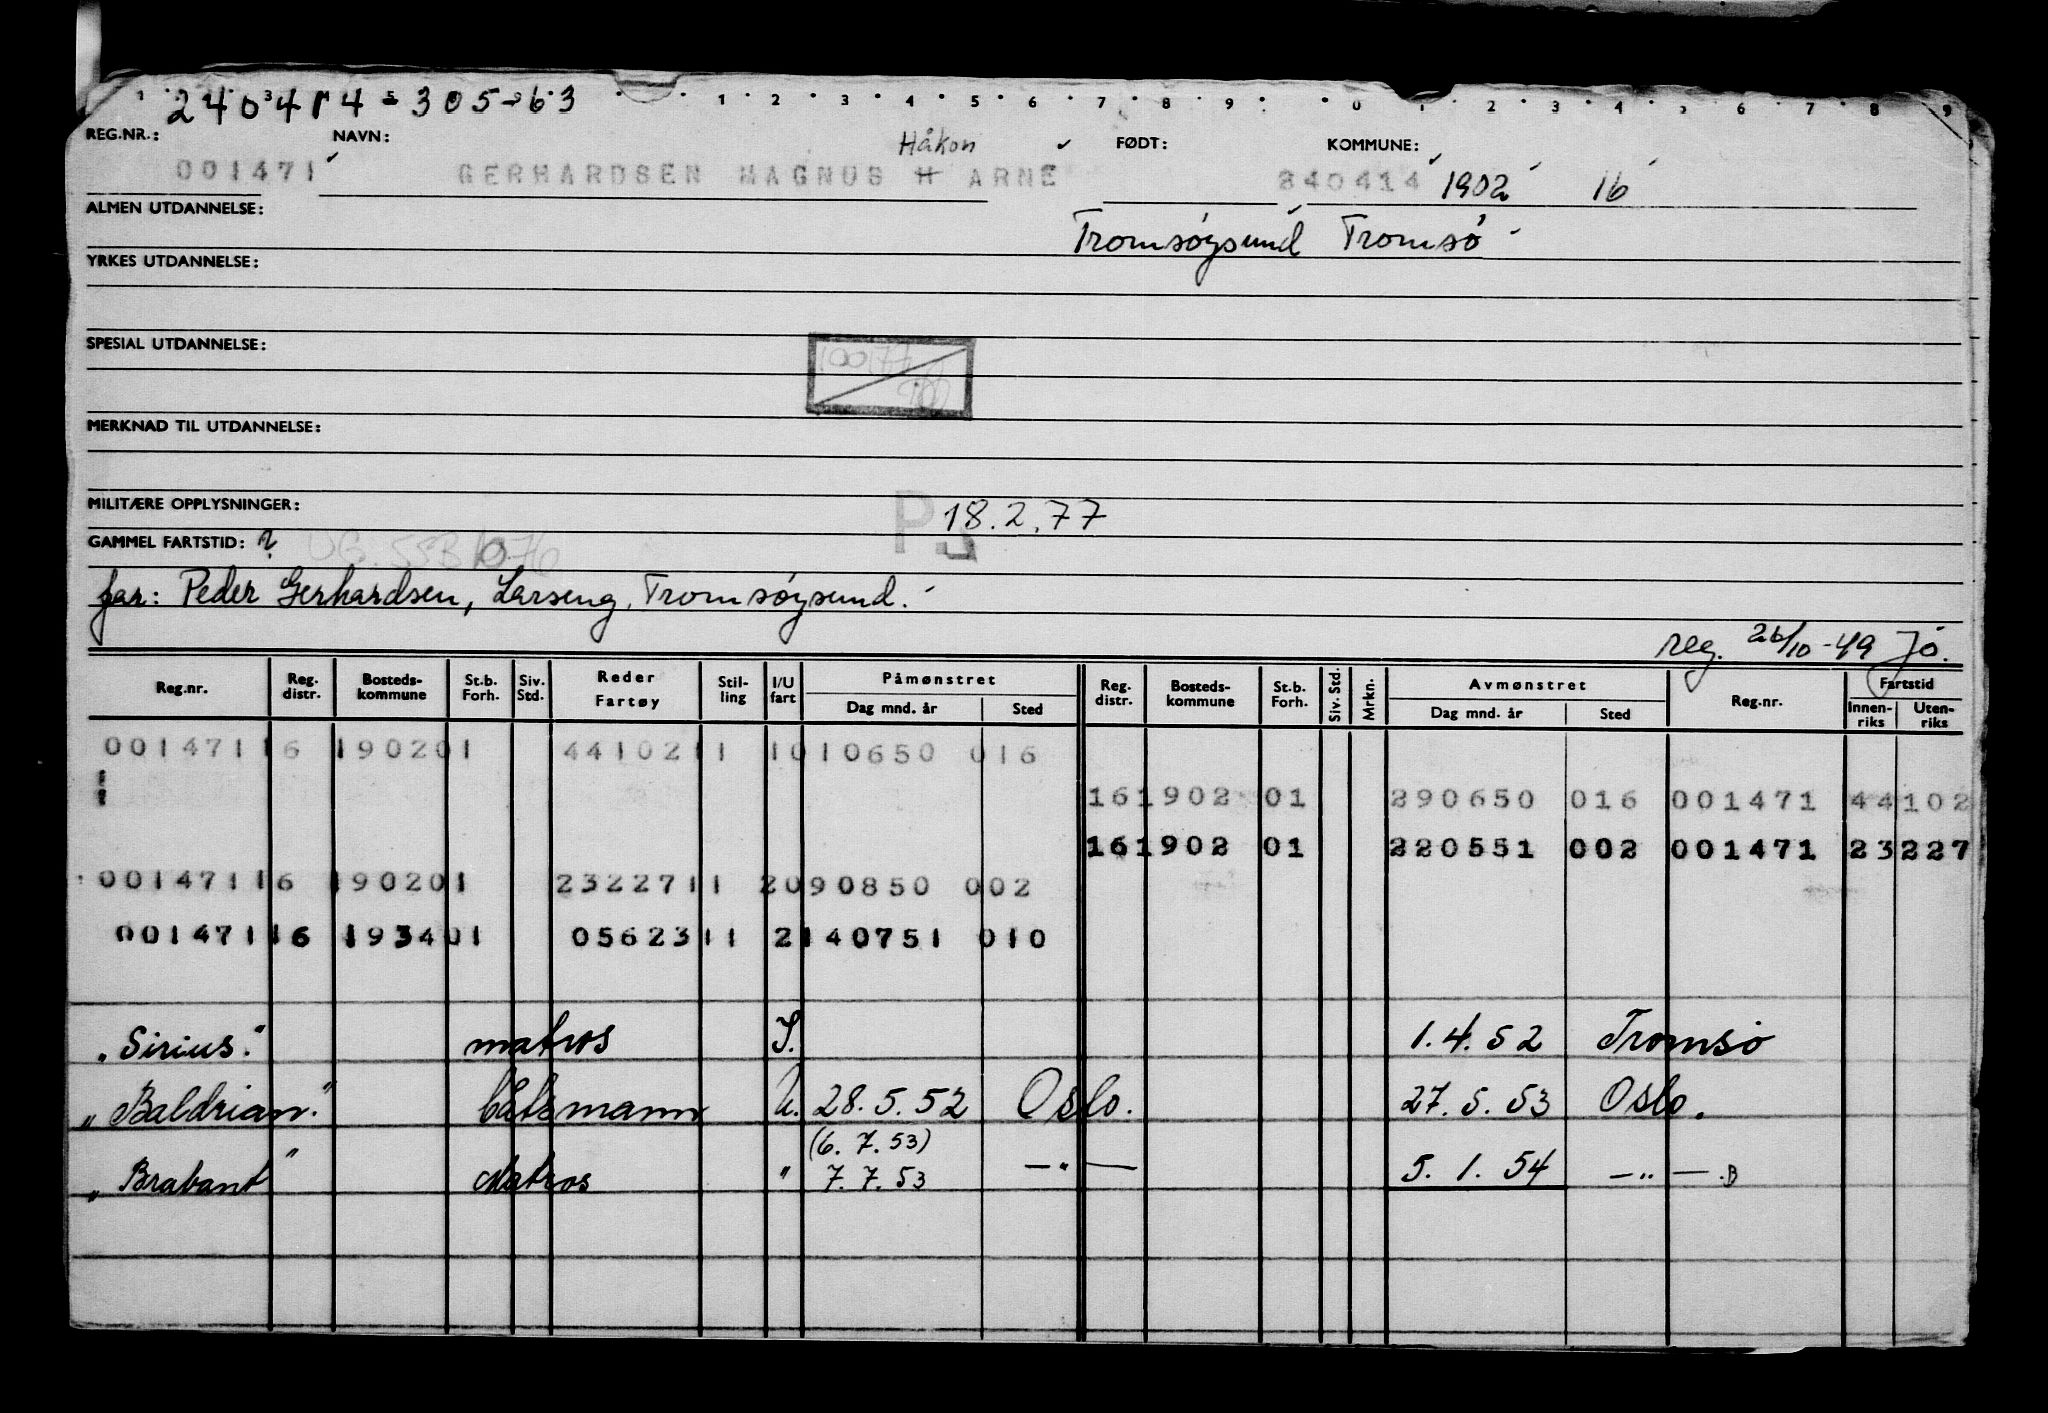 240414-305-63
1 2 3 4 5 6 7 8 9 0 1 2 3 4 5 6 7 8 9
REG.NR.: NAVN: Håkon FØDT: KOMMUNE:
001471 GERHARDSEN MAGNUS H ARNE 240414 1902 16
ALMEN UTDANNELSE: Tromsøysund Tromsø
YRKES UTDANNELSE:
SPESIAL UTDANNELSE:
100177
MERKNAD TIL UTDANNELSE:
MILITÆRE OPPLYSNINGER: 18.2.77
GAMMEL FARTSTID: ?
far: Peder Gerhardsen, Larseng, Tromsøysund.
reg. 26/10-49 Jø.
Reg.nr. Reg. distr. Bosteds-kommune St.b. Forh. Siv. Std. Reder Fartøy Stil-ling I/U fart Påmønstret Dag mnd. år Sted Reg. distr. Bosteds-kommune St.b. Forh. Siv. Std. Mrkn. Avmønstret Dag mnd. år Sted Reg.nr. Fartstid Innen-riks Uten-riks
001471 16 1902 01 44102 11 1 010650 016
161902 01 290650 016 001471 44102
161902 01 220551 002 001471 23227
001471 16 1902 01 23227 11 2 090850 002
001471 16 1934 01 05623 11 2 140751 010
"Sirius." matros I. 1.4.52 Tromsø
"Baldrian." båtsmann U. 28.5.52 Oslo. 27.5.53 Oslo.
(6.7.53)
"Brabant" Matros " 7.7.53 —"— 5.1.54 —"— .B